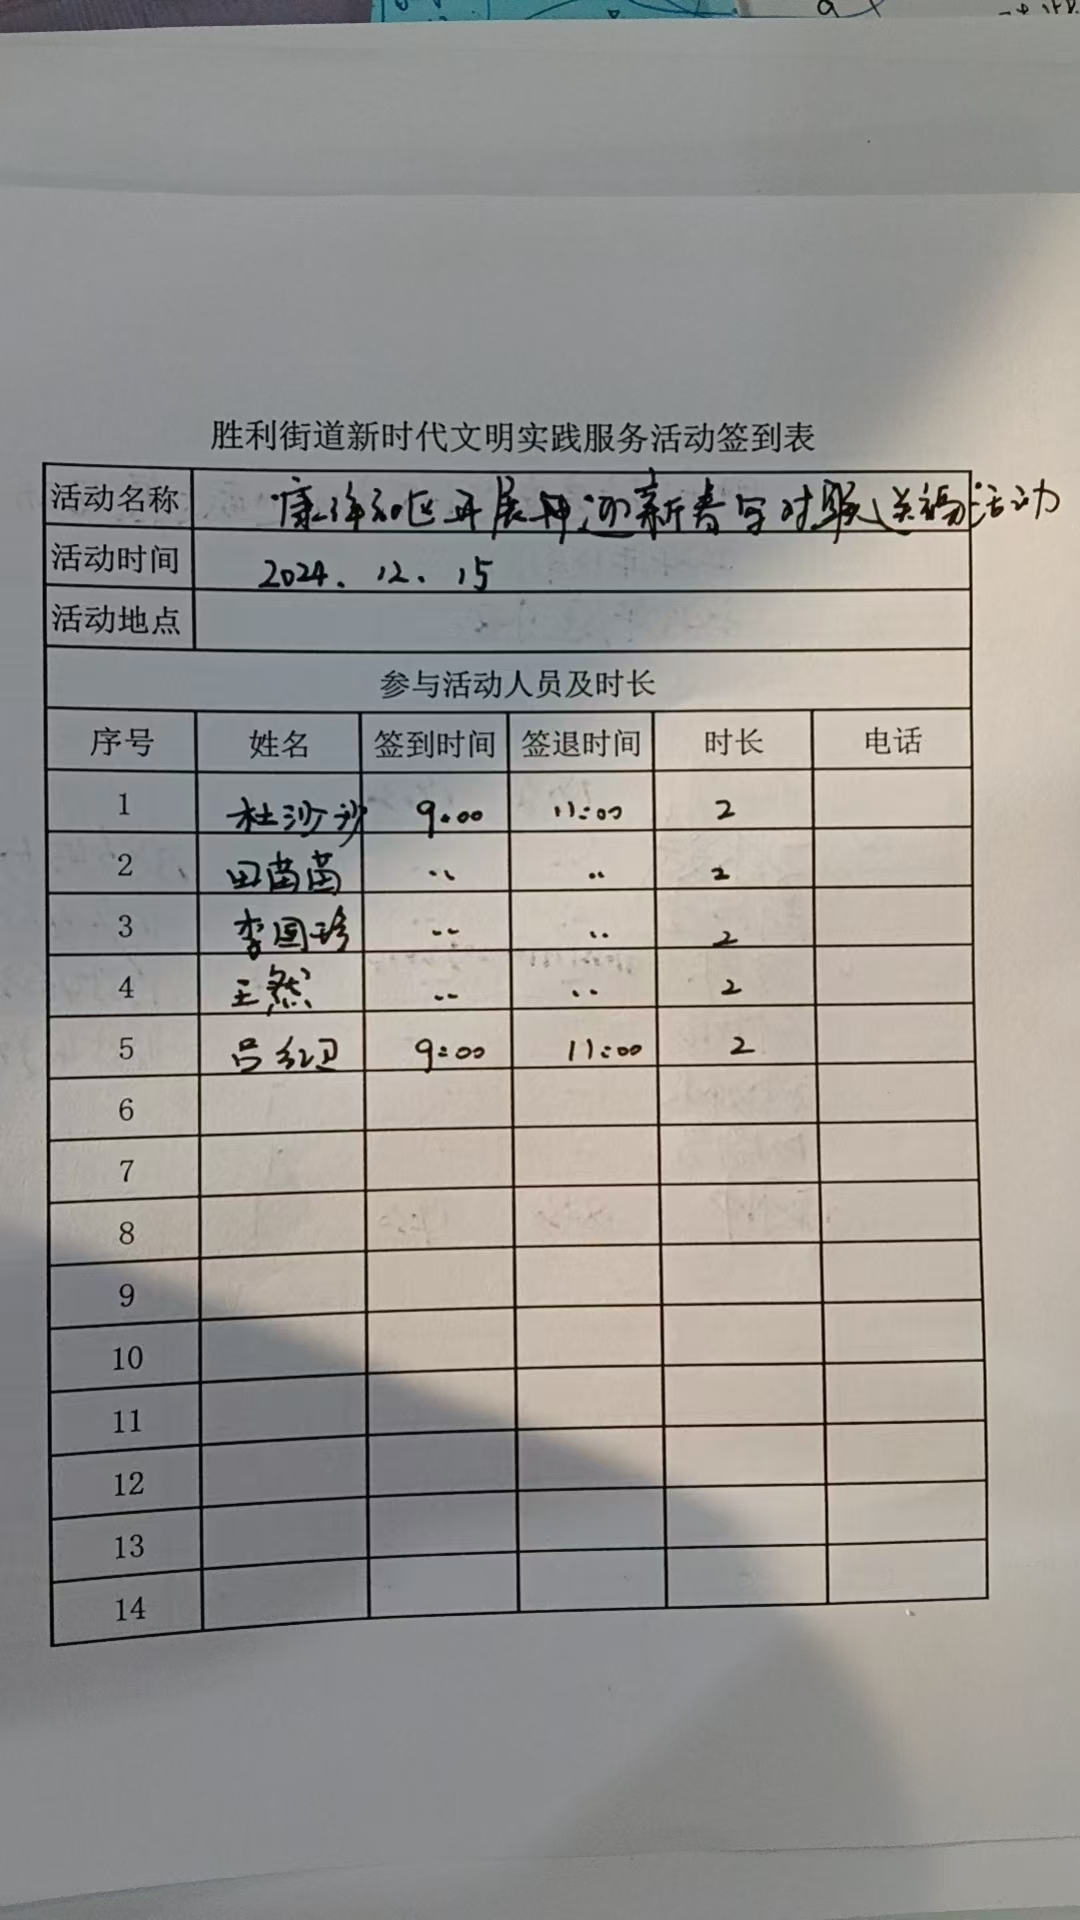 胜利街道新时代文明实践服务活动签到表
活动名称 康 区开展 迎新春写对联送福活动
活动时间 2024.12.15
活动地点
参与活动人员及时长
序号 姓名 签到时间 签退时间 时长 电话
1 杜沙沙 9:00 11:00 2
2 田苗苗 〃 〃 2
3 李国珍 〃 〃 2
4 王然 〃 〃 2
5 吕红卫 9:00 11:00 2
6
7
8
9
10
11
12
13
14